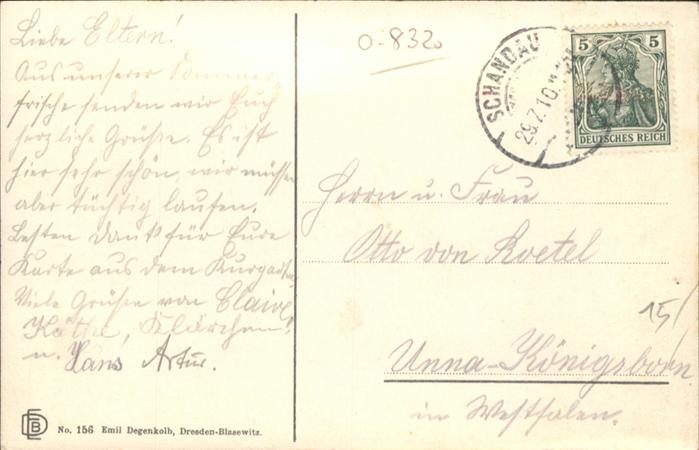 Liebe Eltern!
Aus unserer Sommer
frische senden wir Euch
herzliche Grüße. Es ist
hier sehr schön, wir müssen
aber tüchtig laufen.
Besten Dank für Eure
Karte aus dem Kurgarten
Viele Grüße von Claire,
Käthe, Klärchen!
u. Hans Artur.
No. 156 Emil Degenkolb, Dresden-Blasewitz.
0-8320
SCHANDAU
29.7.10
5 5
DEUTSCHES REICH
Herrn u. Frau
Otto von Roetel
15/
Unna-Königsborn
in Westfalen.